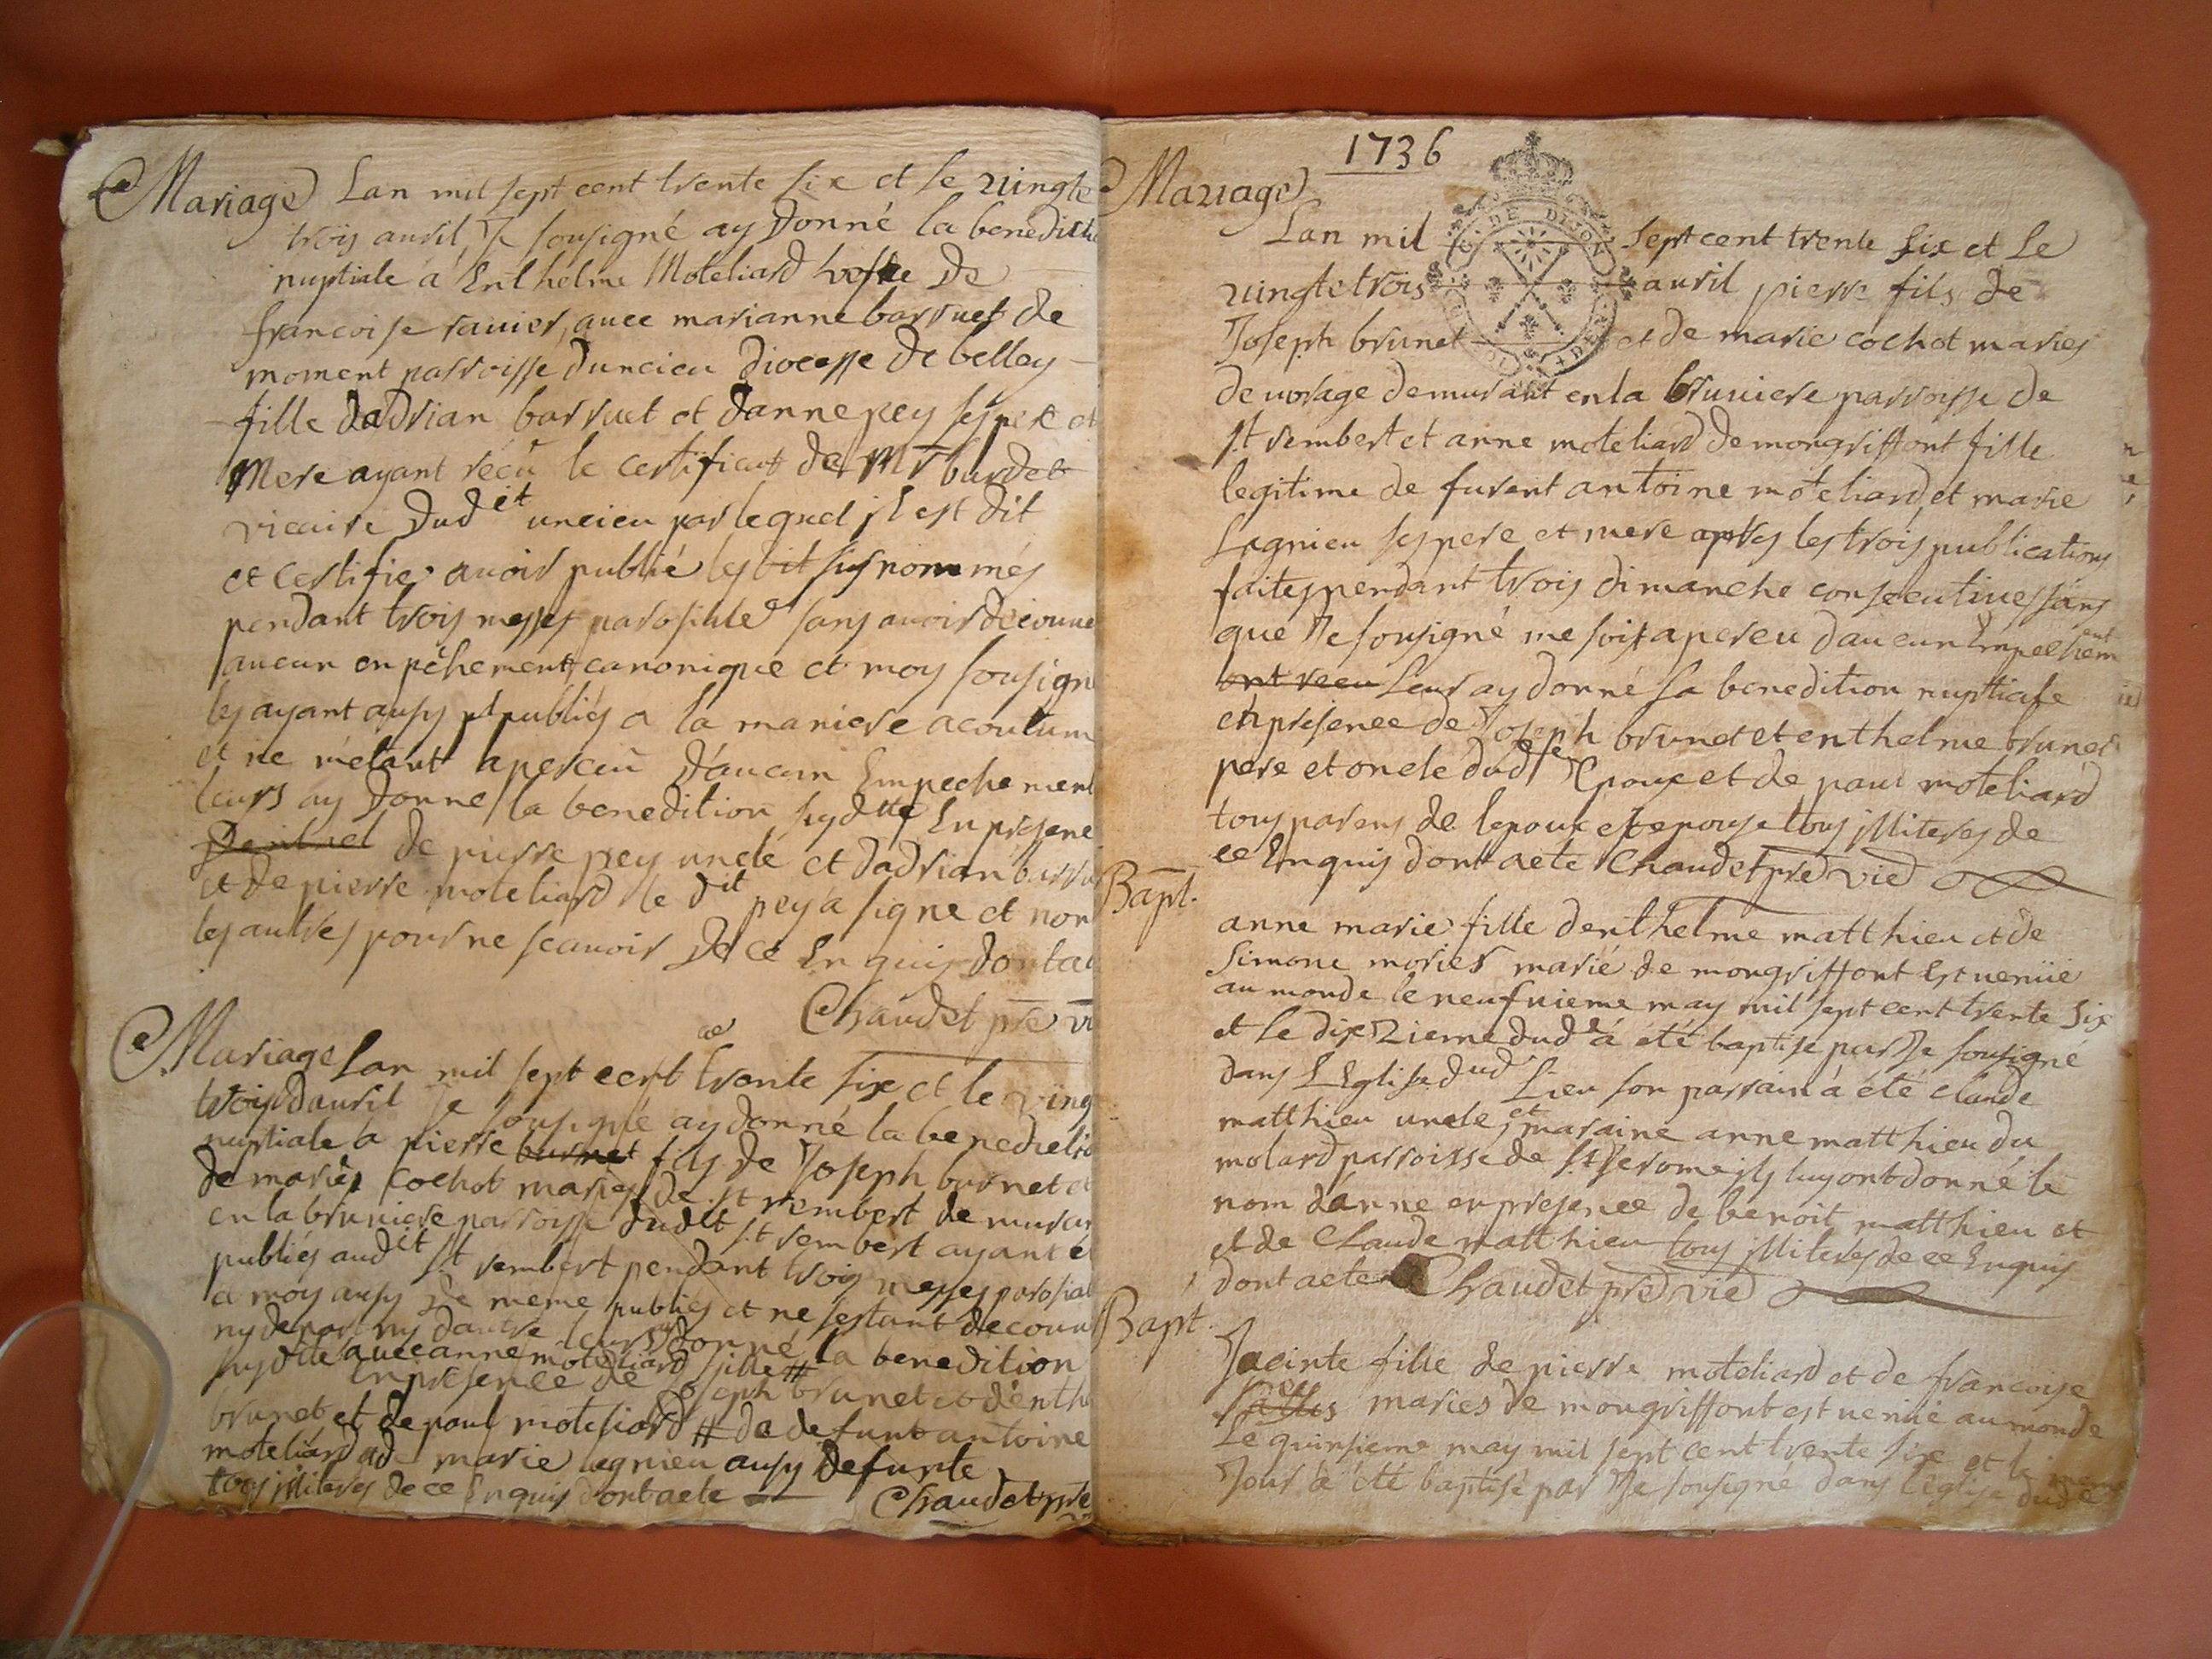 Mariage Lan mil sept cent trente six et le vingte
trois auril, Je sousigné ay donné la benedicti
nuptiale á Enthelme Moteliard
francoise rauier, auec marianne barruet de
moment parroisse duncieu diocesse de belley
fille dadrian barruet et danne pey ses pere et
Mere ayant recû le certificat de Mr burdet
vicaire dudit uncieu par lequel jl est dit
et certifie auoir publié les dit sus nommés
pendant trois messes sans auoir decouue
aucun enpêhement canonique et moy sousign
les ayant ausy publiés a la maniere acoutum
et ne m'étant aperceû d'aucun Empechement
leurs ay donné la benedition susdtte En presene
de pierre pey uncle et dadrian barru
et de pierre moteliard le dit pey á signe et non
les autres pour ne scauoir de ce Enquis dontac
Chaudet pre v
Mariage Lan mil sept cent trente six et le ving
trois dauril Je sousigné ay donné la benedictio
nuptiale a pierre burnet fils de Joseph burnet et
de marie cochot maries de st rembert demurar
en la bruniere parroisse dudit st rembert ayant é
publiés audit st rembert pendant trois messes parosial
et moy ausy de meme publiés et ne sestant decouu
ny de part ny dautre leurs ay donné la benedition
susdtte auec anne moteliard fille #
En presence de Joseph brunet et d'enth
brunet et de paul moteliard # de defunt antoine
moteliard et marie lagnieu ausy defunte
tous jlliteres de ce Enquis dont acte Chaudet pre
1736
Mariage
Lan mil sept cent trente six et le
vingte trois auril pierre fils de
Joseph brunet et de marie cochot maries
demurant en la bruniere parroisse de
st rembert et anne moteliard de mongriffont fille
legitime de furent antoine moteliard, et marie
Lagnieu ses pere et mere apres les trois publications
faites pendant trois dimanche consecutiues sans
que Je sousigné me sois aperceu daucun Empechement
ont receu Leur ay donné la benedition nuptiale
en presence de Joseph brunet et enthelme brunet
pere et oncle dud epoux et de paul moteliard
tous parens de lepoux et epouse tous jlliteres de
ce Enquis dont acte Chaudet pre vic
Bapt.
anne marie fille denthelme matthieu et de
Simone morier marié de mongriffont Est uenüe
au monde le neufuieme may mil sept cent trente six
et le dixzieme dud á été baptise par Je sousigné
dans LEglise dud Lieu son parrain á été claude
matthieu uncle, et maraine anne matthieu du
molard parroisse de St Jerome jls luy ont donné le
nom danne en presence de benoit matthieu et
et de Claude matthieu tous jlliterés de ce Enquis
dont acte Chaudet pre vic
Bapt.
Jacinte fille de pierre moteliard et de francoise
maries de mongriffont est uenüe au monde
Le quinsieme may mil sept cent trente six et le meme
Jour á été baptisé par Je sousigné dans léglise dud